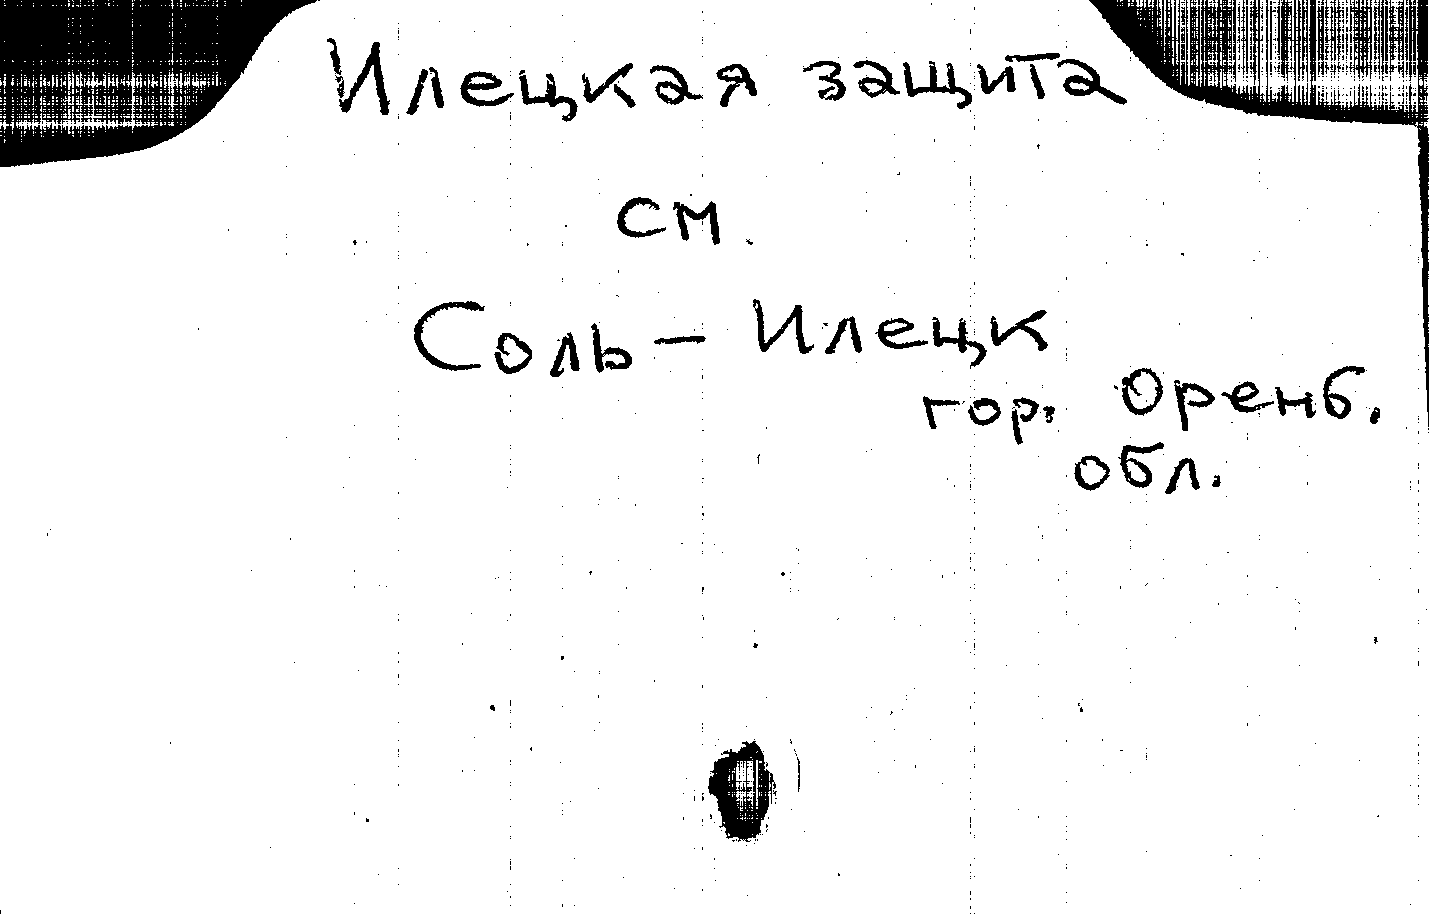 Илецкая защита
см.
Соль - Илецк
гор. Оренб.
обл.